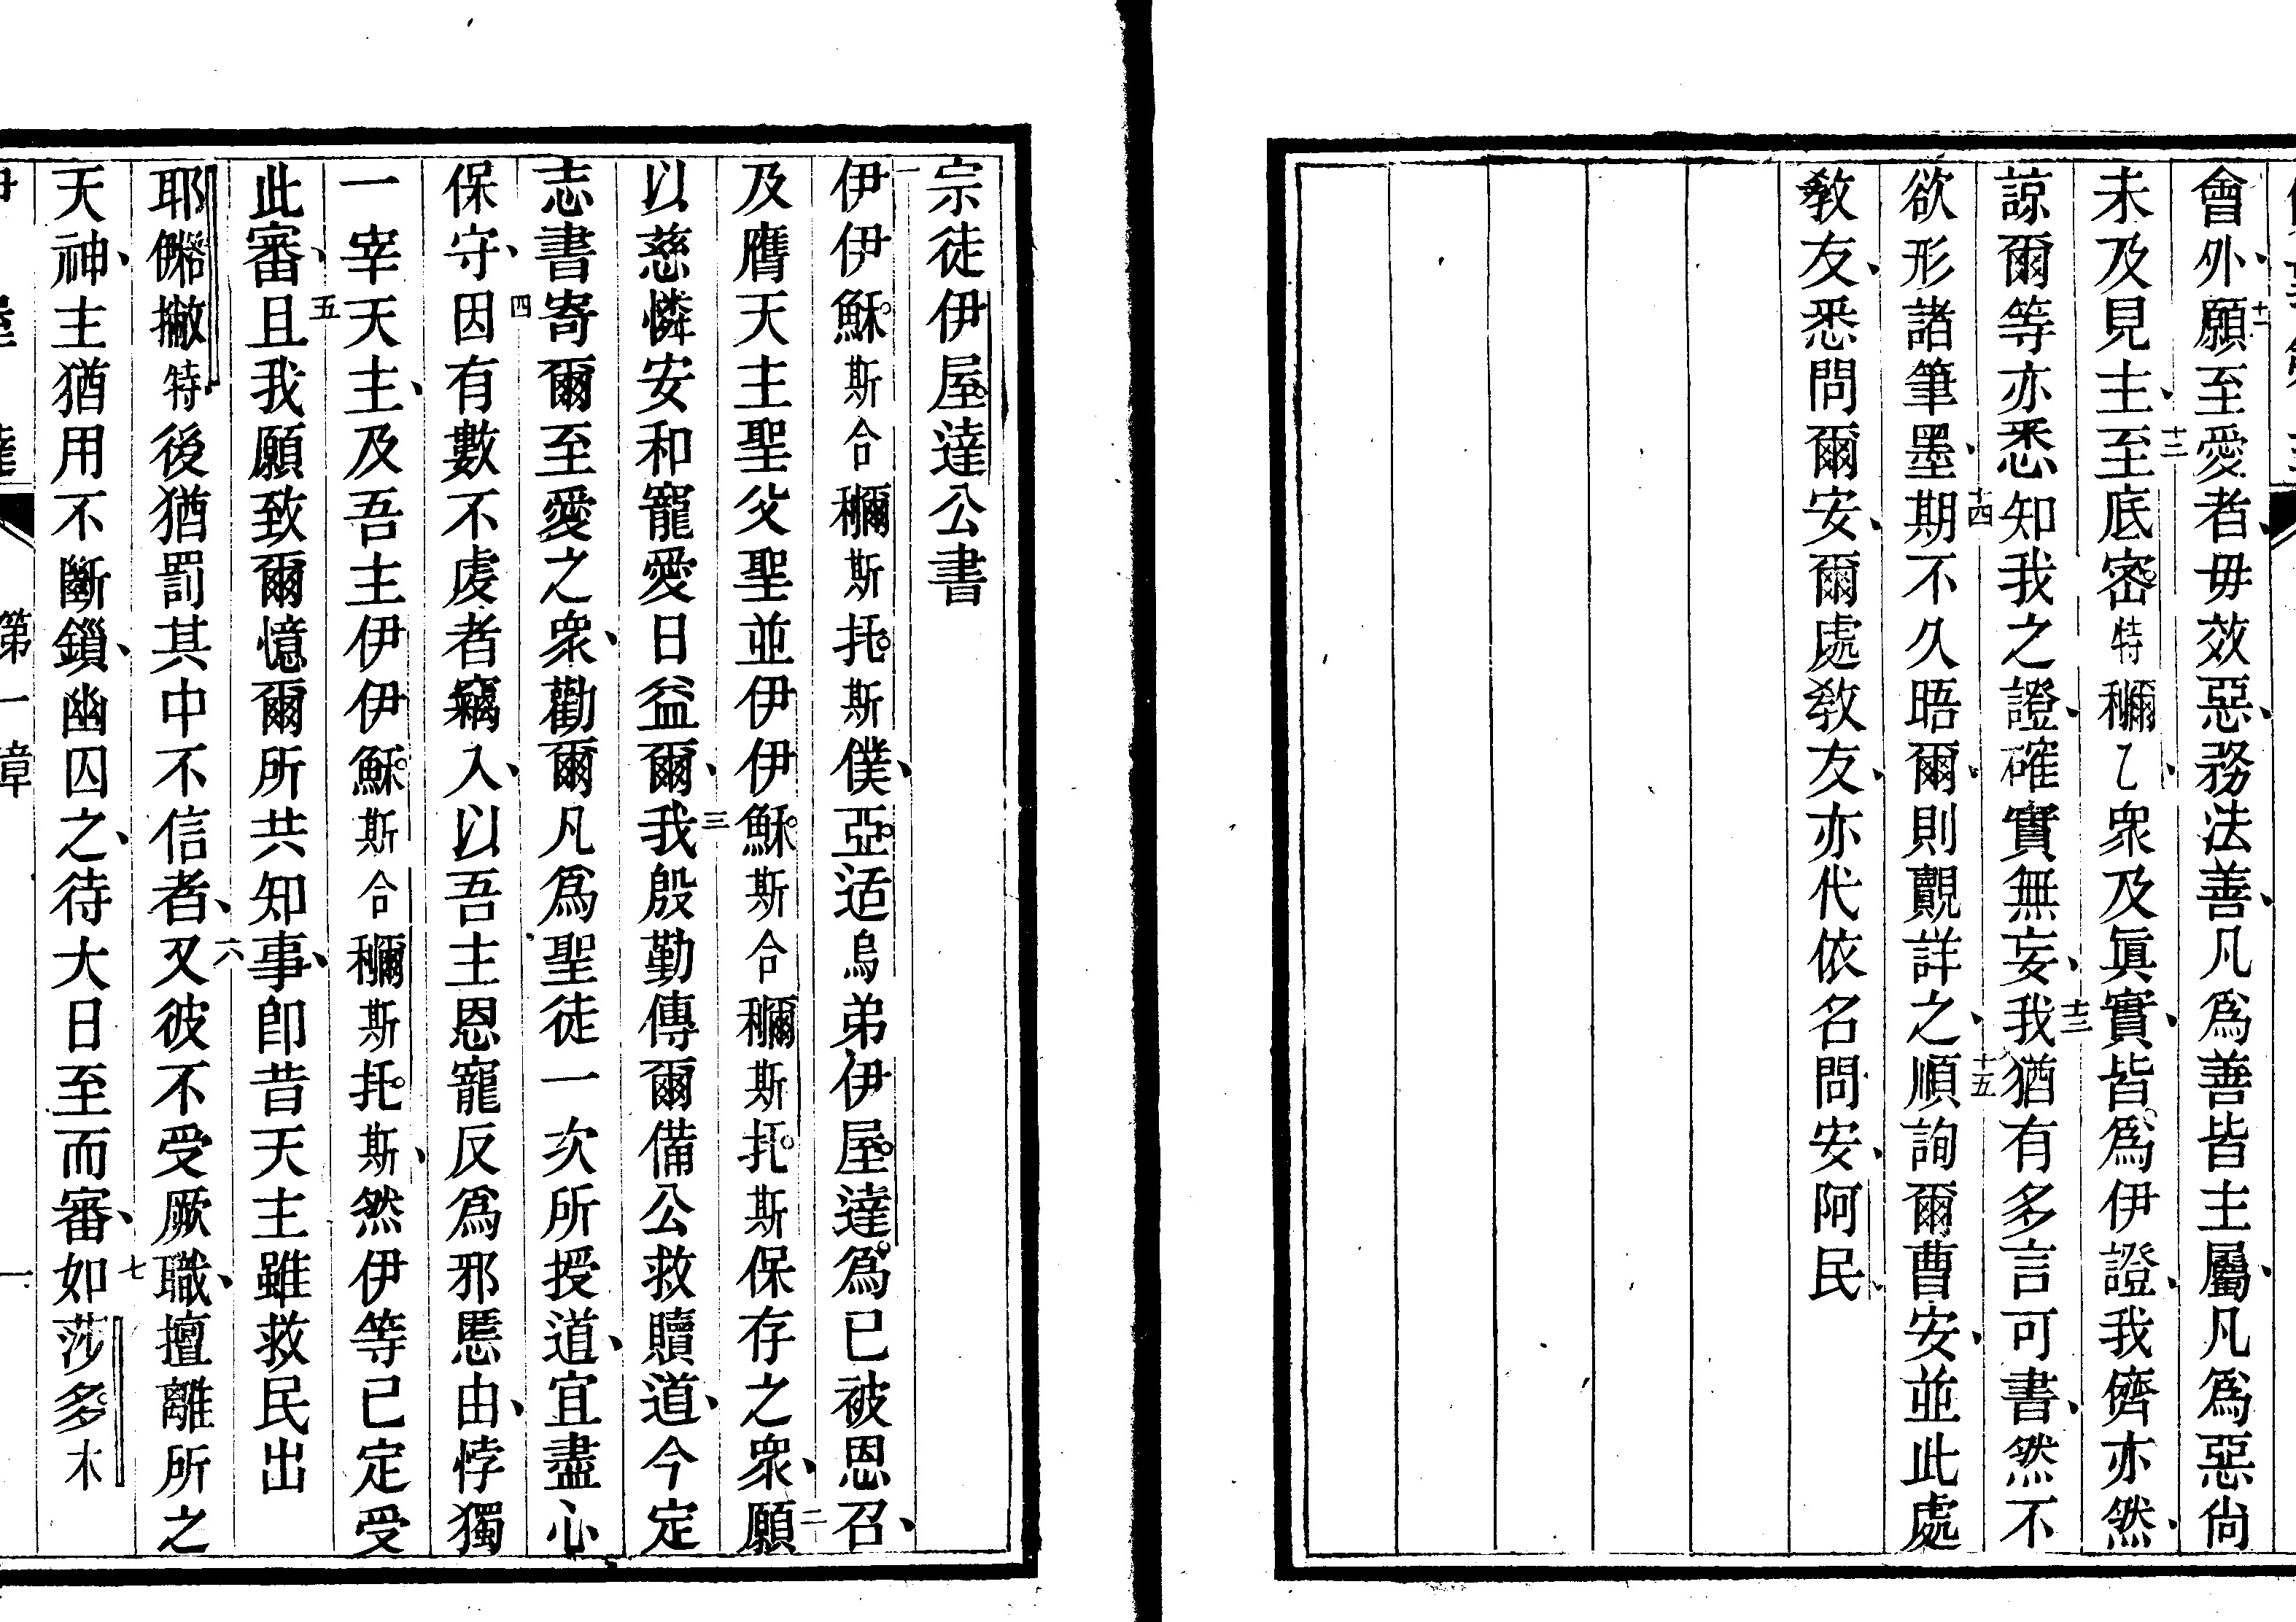 會外、十一願至愛者、毋效惡、務法善、凡爲善皆主屬、凡爲惡尙
未及見主、十二至底密特穪乙、衆及眞實、皆爲伊證、我儕亦然、
諒爾等亦悉知我之證、確實無妄、十三我猶有多言可書、然不
欲形諸筆墨、十四期不久晤爾、則覿詳之、十五順詢爾曹安、並此處
敎友、悉問爾安、爾處敎友、亦代依名問安、阿民、
宗徒伊屋達公書
一伊伊穌斯合穪斯托斯僕、亞适烏弟伊屋達爲已被恩召、
及膺天主聖父聖並伊伊穌斯合穪斯托斯保存之衆、二願
以慈憐安和寵愛日益爾、三我殷勤傳爾備公救贖道、今定
志書寄爾至愛之衆、勸爾凡爲聖徒一次所授道、宜盡心
保守、四因有數不虔者竊入、以吾主恩寵反爲邪慝由、悖獨
一宰天主、及吾主伊伊穌斯合穪斯托斯、然伊等已定受
此審、五且我願致爾憶爾所共知事、卽昔天主雖救民出
耶撇特後猶罰其中不信者、六又彼不受厥職、擅離所之
天神、主猶用不斷鎖、幽囚之、待大日至而審、七如莎多木
第一章
一